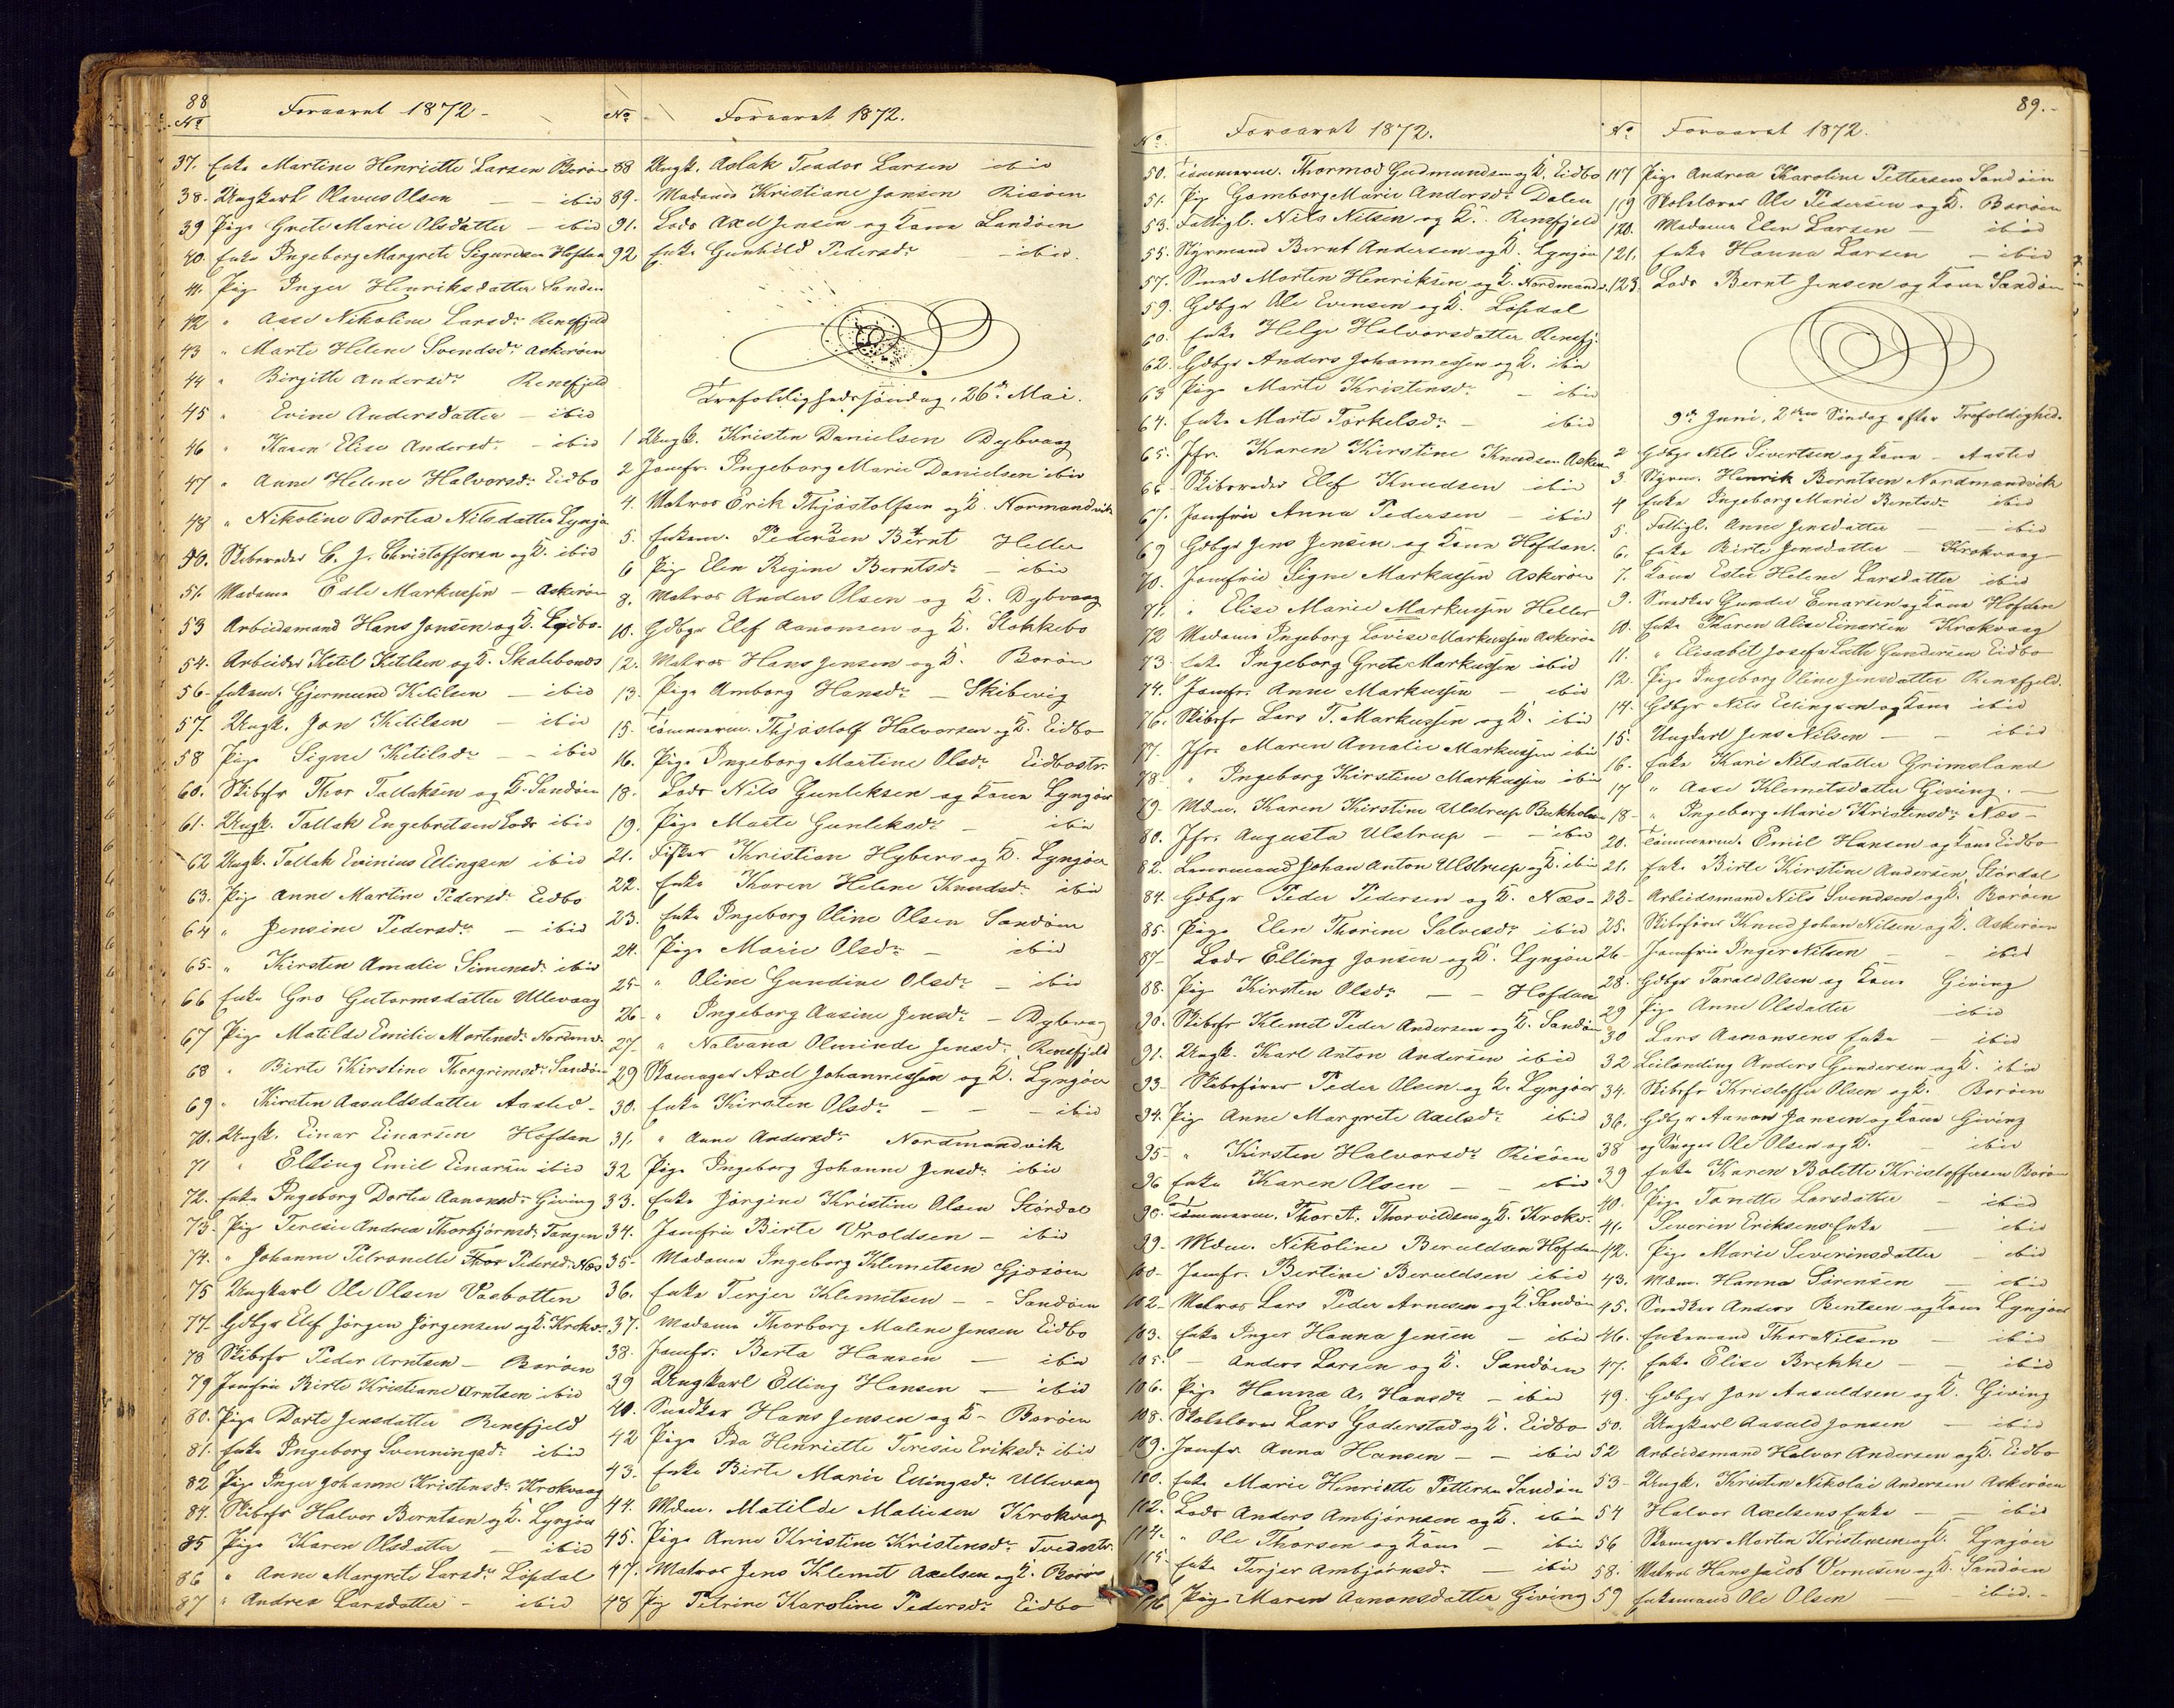 88
No
Foraaret 1872 -
37. Enke Martine Henriette Larsen Borøen
38. Ungkarl Olavus Olsen — ibid
39 Pige Grete Marie Olsdatter — ibid
40. Enke Ingeborg Margrete Sigurdsen Hofdan
41. Pig Inger Henriksdatter Sanden
42 " Aase Nikoline Larsdr Rensfjeld
43 " Marte Helene Svendsdr Askerøen
44 " Birgitte Andersdr Rensfjeld
45 " Evine Andersdatter — ibid
46 " Karen Elise Andersdr — ibid
47 " Anne Helene Halvorsdr Eidbo
48 " Nikoline Dortea Nilsdatter Lyngø
50. Skibsreder C. J. Christoffersen og K. ibid
51 Madame Edle Markussen — Askerøen
53 Arbeidsmand Hans Jonsen og K. Eidbo
54. Arbeider Ketil Ketilsen og K. Skalebonæs
56 - Enkem. Gjermund Ketilsen — ibid
57 - Ungk. Jon Ketilsen — ibid
58 Pige Signe Ketilsdr — ibid
60. Skibsfr Thor Tallaksen og K. Sandøen
61. Ungk. Tallak Engebretsen Lods ibid
62 Ungk. Tallak Evinius Ellingsen ibid
63. Pig Anne Martine Pedersdr Eidbo
64 " Jensine Pedersdr — ibid
65 - " Kirsten Amalie Simonsdr ibid
66 Enke Gro Gutormsdatter Ullevaag
67 Pige Matilde Emilie Mortensdr Nordmv.
68 " Birte Kirstine Thorgrimsdr Sandøen
69 " Kirsten Aasuldsdatter Aasted -
70. Ungk. Einar Einarsen Hofdan
71 " Elling Emil Einarsen ibid
72. Enke Ingeborg Dortea Aanonsdr Giving
73 - Pig Teresie Andrea Thorbjørnsdr Tangen
74. " Johanne Petronelle Pedersdr Næs
75 Ungkarl Ole Olsen Vasbotten
77 - Gdbgr Elef Jørgen Jørgensen og K. Krokv.
78 Skibsfr Peder Arntsen — Borøen
79 Jomfru Birte Kristiane Arntsen ibid
80. Pige Dorte Jensdatter Rensfjeld
81. Enke Ingeborg Svenningsdr ibid
82 Pig Inger Johanne Kristensdr Krokvaag
84. Skibsfr Halvor Berntsen og K. Lyngøen
85 Pige Karen Olsdatter — ibid
86 " Anne Margrete Larsdr Løpdal
87 " Andrea Larsdatter - ibid
No -
Foraaret 1872.
88 Ungk. Aslak Teodor Larsen ibid
89. Madame Kristiane Jonsen Risøen
91. Lods Axel Jensen og Kone Sandøen
92 Enke Gunhild Pedersdr — ibid.
Trefoldighedssøndag, 26de Mai.
1 Ungk. Kristen Danielsen Dybvaag
2 Jomfr. Ingeborg Marie Danielsen ibid
4. Matros Erik Thjøstolfsen og K. Normandvik
5. Enkem. Pedersen Bernt Heller
6 Pig Elen Regine Berntsdr — ibid
8. Matros Anders Olsen og K. Dybvaag
10. Gdbgr Elef Aanonsen og K. Stokkebo
12. Matros Hans Jensen og K. Borøen
13 Pige Amborg Hansdr — Skibevig
15. Tømmerm. Thjøstolf Halvorsen og K. Eidbo
16. Pige Ingeborg Martine Olsdr Eidbostr.
18. Lods Nils Gunleksen og Kone Lyngøer
19. Pige Marte Gunleksdr — ibid
21. Fisker Kristian Hybers og K. Lyngøer
22. Enke Karen Helene Knudsdr ibid
23. Enke Ingeborg Oline Olsen Sandøen
24. Pige Marie Olsdr — ibid
25 - " Oline Gundine Olsdr — ibid
26 - " Ingeborg Aasine Jensdr — Dybvaag
27 - " Nalvana Olminde Jensdr Rensfjeld
29 Skomager Axel Johannessen og K. Lyngøer
30. Enke Kirsten Olsdr — — ibid
31. " Anne Andersdr Nordmandvik
32 Pige Ingeborg Johanne Jensdr ibid
33. Enke Jørgine Kristine Olsen Størdal
34. Jomfru Birte Vroldsen — ibid
35 - Madame Ingeborg Klemetsen Gjæsøen
36. Enke Terjer Klemetsen — Sandøen
37. Madame Thorborg Malene Jensen Eidbo
38. Jomfr. Berta Hansen — ibid
39 Ungkarl Elling Hansen — ibid
40. Snedker Hans Jensen og K - Borøen
42 Pige Ida Henriette Teresie Eriksdr ibid
43. Enke Birte Marie Ellingsdr Ullevaag
44. Mdm. Matilde Mathisen Krokvaag
45. Pige Anne Kristine Kristensdr Tvedestr.
47. Matros Jens Klemet Axelsen og K. Borøen
48 Pig Petrine Karoline Pedersdr Eidbo
No
Foraaret 1872.
50. Tømmerm. Thormod Gudmundsen og K. Eidbo
51. Pig Gomborg Marie Andersdr Dalen
53. Fattigl. Nils Nilsen og K. Rensfjeld
55. Styrmand Bernt Andersen og K. Lyngøen
57. Smed Morten Henriksen og K. Nordmandv.
59. Gdbgr Ole Evensen og K. Løpdal
60. Enke Helge Halvorsdatter Rensfj.
62. Gdbgr Anders Johannessen og K. ibid
63 Pige Marte Kristensdr — ibid
64. Enke Marte Torkelsdr — ibid
65. Jfr. Karen Kirstine Knudsen Asker.
66 - Skibsreder Elef Knudsen ibid
67. Jomfru Anna Pedersen — ibid
69 Gdbgr Jens Jensen og Kone Hofdan.
70. Jomfrue Signe Markussen Askerøen
71. " Elise Marie Markussen Heller
72 Madame Ingeborg Lovise Markussen Askerøen
73. Enke Ingeborg Grete Markussen ibid
74. Jomfr. Anne Markussen — ibid
76. Skibsfr Lars T. Markussen og K. ibid
77. Jfr. Maren Amalie Markussen ibid
78. " Ingeborg Kirstine Markussen ibid
79. Mdm. Karen Kirstine Ulstrup Bukholmen
80. Jfr. Augusta Ulstrup — — ibid
82. Lensmand Johan Anton Ulstrup og K. ibid
84. Gdbgr Peder Pedersen og K. Næs -
85. Pige Elen Thorine Salvesdr ibid
87 - Lods Elling Jansen og K. Lyngøen
88. Pig Kirsten Olsdr — — Hofdan
90. Skibsfr Klemet Peder Andersen og K. Sandøen
91. Ungk. Karl Anton Andersen ibid
93 - Skibsfører Peder Olsen og K. Lyngøer
94. Pig Anne Margrete Axelsdr ibid
95 - " Kirsten Halvorsdr Risøen
96 Enke Karen Olsen — — ibid
98. Tømmerm. Thor A. Thorvildsen og K. Krokv.
99 - Mdm. Nikoline Beruldsen Hofdan
100 - Jomfr. Bertine Beruldsen ibid
102 - Matros Lars Peder Arnesen og K. Sandøen
103. Enke Inger Hanna Jensen — ibid
105. — Anders Larsen og K. Sandøen
106. Pige Hanna A. Hansdr — ibid
108. Skolelærer Lars Goderstad og K. Eidbo
109. Jomfr. Anna Hansen — — ibid
110. Enke Marie Henriette Pettersen Sandøen
112. Lods Anders Ambjørnsen og K. ibid
114. " Ole Thorsen og Kone — ibid
115. Enke Terjer Ambjørnsdr — ibid
116 Pige Maren Aanonsdatter Giving
89.-
No
Foraaret 1872.
117 Pige Andrea Karoline Pettersen Sandøen
119 Skolelærer Ole Pedersen og K. Borøen
120. Madame Elen Larsen — ibid
121. Enke Hanna Larsen — ibid
123. Lods Bernt Jensen og Kone Sandøen
9de Juni, 2den Søndag efter Trefoldighed.
2 Gdbgr Nils Sivertsen og Kone - Aasted
3. Styrm. Henrik Berntsen Nordmandvik
4 Enke Ingeborg Marie Berntsdr ibid
5. Fattigl. Anne Jensdatter — — ibid
6. Enke Birte Jensdatter Krokvaag
7. Kone Ester Helene Larsdatter ibid
9. Snedker Gunder Einarsen og Kone Hofdan
10. Enke Karen Alise Einarsen Krokvaag
11. " Elisabet Josefa Lutte Gundersen Eidbo
12. Pige Ingeborg Oline Jensdatter Rensfjeld.
14. Gdbgr Nils Ellingsen og Kone ibid
15. Ungkarl Jens Nilsen — — ibid
16 - Enke Kari Nilsdatter Grimsland
17 " Aase Klemetsdatter Giving. —
18 - " Ingeborg Marie Kristensdr Næs —
20. Tømmerm. Emil Hansen og Kone Eidbo
21. Enke Birte Kirstine Andersen, Størdal
23 - Arbeidsmand Nils Svendsen og K. Borøen
25. Skibsfører Knud Johan Nilsen og K. Askerøen
26 - Jomfru Inger Nilsen — — ibid
28. Gdbgr Tarald Olsen og Kone Giving
29 Pige Anne Olsdatter — ibid
30 Lars Aanonsens Enke — ibid
32 Leilending Anders Gundersen og K. ibid
34. Skibsfr Kristoffer Olsen og K. Borøen
36. Gdbgr Aanon Jonsen og Kone Giving
38 og Svoger Ole Olsen og K. — ibid
39 Enke Karen Bolette Kristoffersen Borøen
40. Pige Tonette Larsdatter — ibid
41. Severin Eriksens Enke — ibid
42. Pige Marie Severinsdatter — ibid
43. Mdm. Hanna Sørensen — ibid
45. Snedker Anders Bentsen og Kone Lyngøer
46. Enkemand Thor Nilsen — ibid
47. Enke Elise Brekke — — ibid
49. Gdbgr Jon Aasuldsen og K. Giving
50. Ungkarl Aasuld Jonsen — ibid
52 Arbeidsmand Halvor Andersen og K. Eidbo
53 - Ungk. Kristen Nikolai Andersen Askerøen
54 Halvor Axelsens Enke — ibid
56 Skomager Morten Kristensen og K. Lyngøer
58. Matros Hans Jacob Vernesen og K. Sandøen
59 Enkemand Ole Olsen — ibid. -